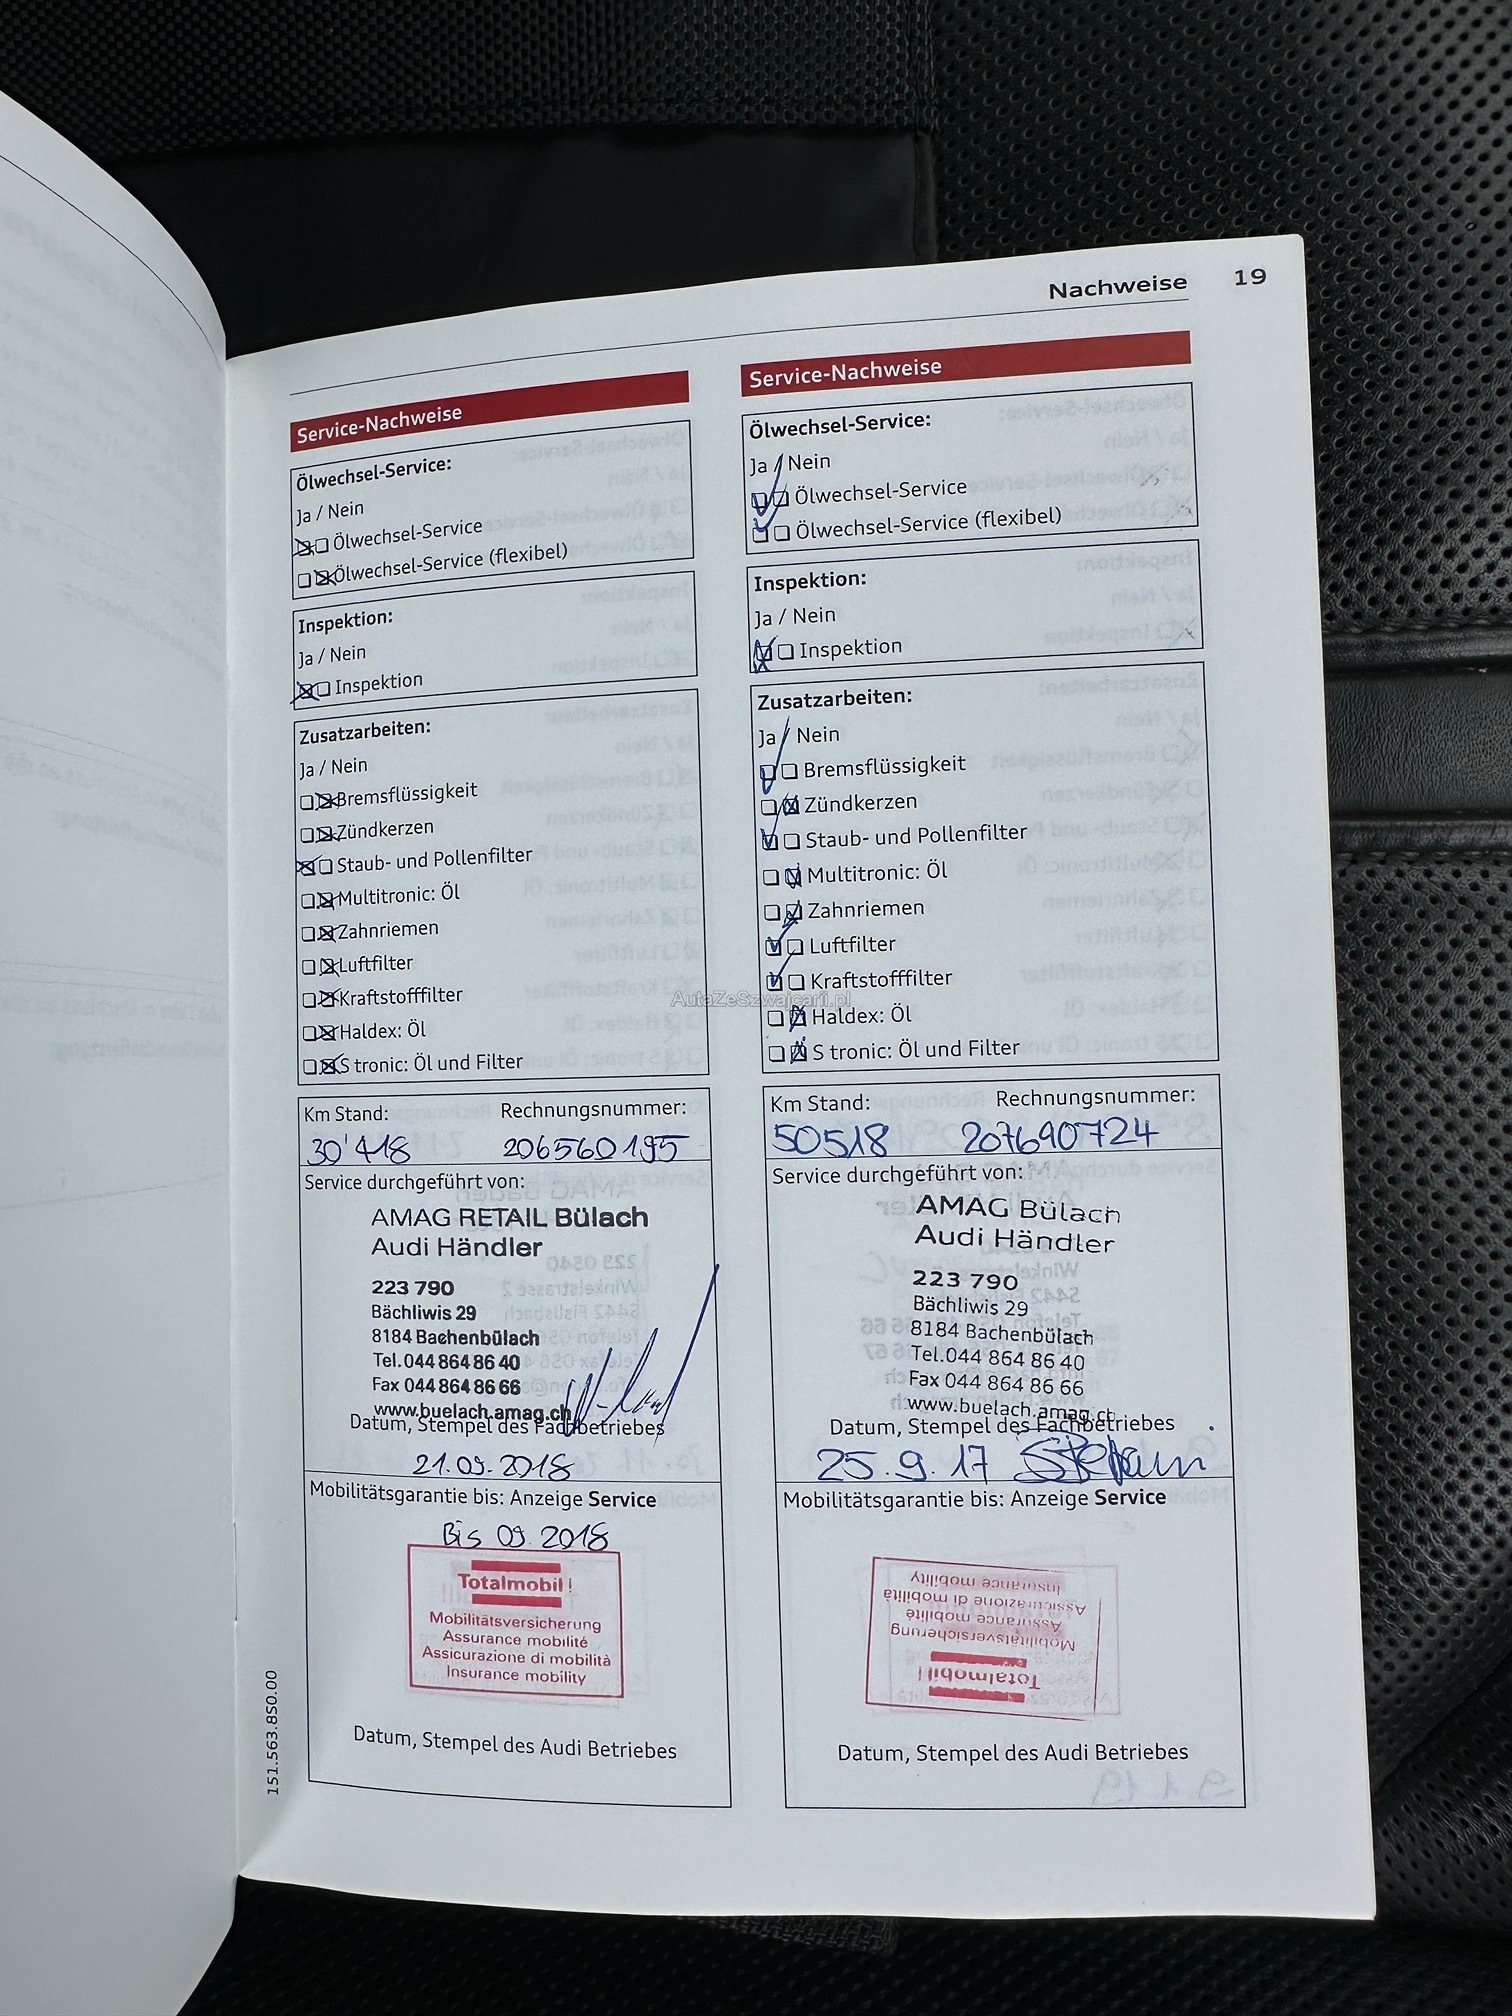 Nachweise 19
Service-Nachweise
Ölwechsel-Service:
Ja / Nein
Ölwechsel-Service
Ölwechsel-Service (flexibel)
Inspektion:
Ja / Nein
Inspektion
Zusatzarbeiten:
Ja / Nein
Bremsflüssigkeit
Zündkerzen
Staub- und Pollenfilter
Multitronic: Öl
Zahnriemen
Luftfilter
Kraftstofffilter
Haldex: Öl
S tronic: Öl und Filter
Km Stand: Rechnungsnummer:
30'418 206560195
Service durchgeführt von:
AMAG RETAIL Bülach
Audi Händler
223 790
Bächliwis 29
8184 Bachenbülach
Tel. 044 864 86 40
Fax 044 864 86 66
www.buelach.amag.ch
Datum, Stempel des Fachbetriebes
21.09.2018
Mobilitätsgarantie bis: Anzeige Service
Bis 09.2018
Totalmobil!
Mobilitätsversicherung
Assurance mobilité
Assicurazione di mobilità
Insurance mobility
Datum, Stempel des Audi Betriebes
151.563.850.00
Service-Nachweise
Ölwechsel-Service:
Ja / Nein
Ölwechsel-Service
Ölwechsel-Service (flexibel)
Inspektion:
Ja / Nein
Inspektion
Zusatzarbeiten:
Ja / Nein
Bremsflüssigkeit
Zündkerzen
Staub- und Pollenfilter
Multitronic: Öl
Zahnriemen
Luftfilter
Kraftstofffilter
Haldex: Öl
S tronic: Öl und Filter
Km Stand: Rechnungsnummer:
50518 207690724
Service durchgeführt von:
AMAG Bülach
Audi Händler
223 790
Bächliwis 29
8184 Bachenbülach
Tel. 044 864 86 40
Fax 044 864 86 66
www.buelach.amag.ch
Datum, Stempel des Fachbetriebes
25.9.17
Mobilitätsgarantie bis: Anzeige Service
Totalmobil!
Mobilitätsversicherung
Assurance mobilité
Assicurazione di mobilità
Insurance mobility
Datum, Stempel des Audi Betriebes
AutaZeSzwajcarii.pl